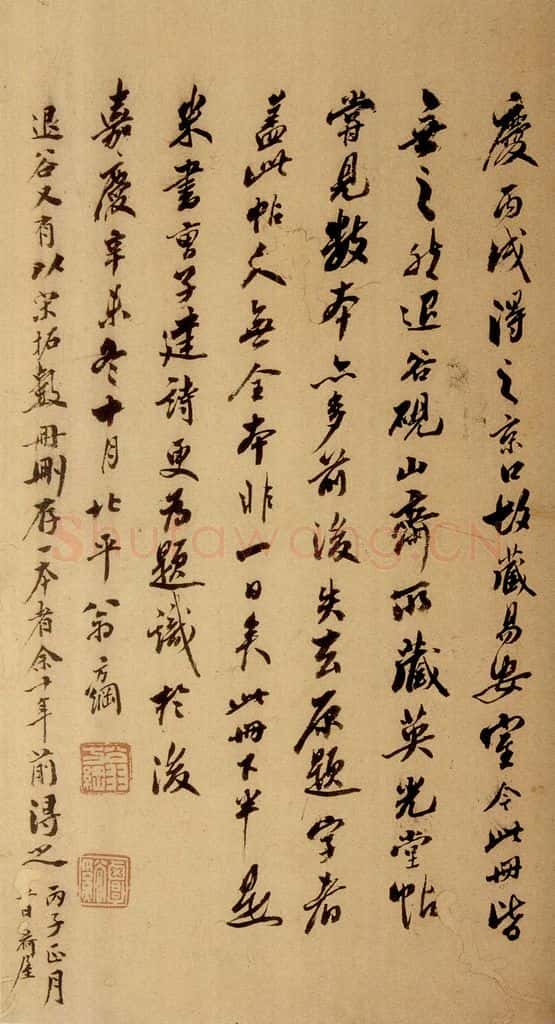 慶丙戌得之京口故藏易安室今此冊皆
無之然退谷硯山齋所藏英光堂帖
嘗見數本亦多前後失去原題字者
蓋此帖久無全本非一日矣此冊下半是
米書曹子建詩更為題識於後
嘉慶辛未冬十月北平翁方綱
退谷又有以宋拓數冊刪存一本者余十年前得之
丙子正月
十日荷屋
翁方綱
Shufawang.CN